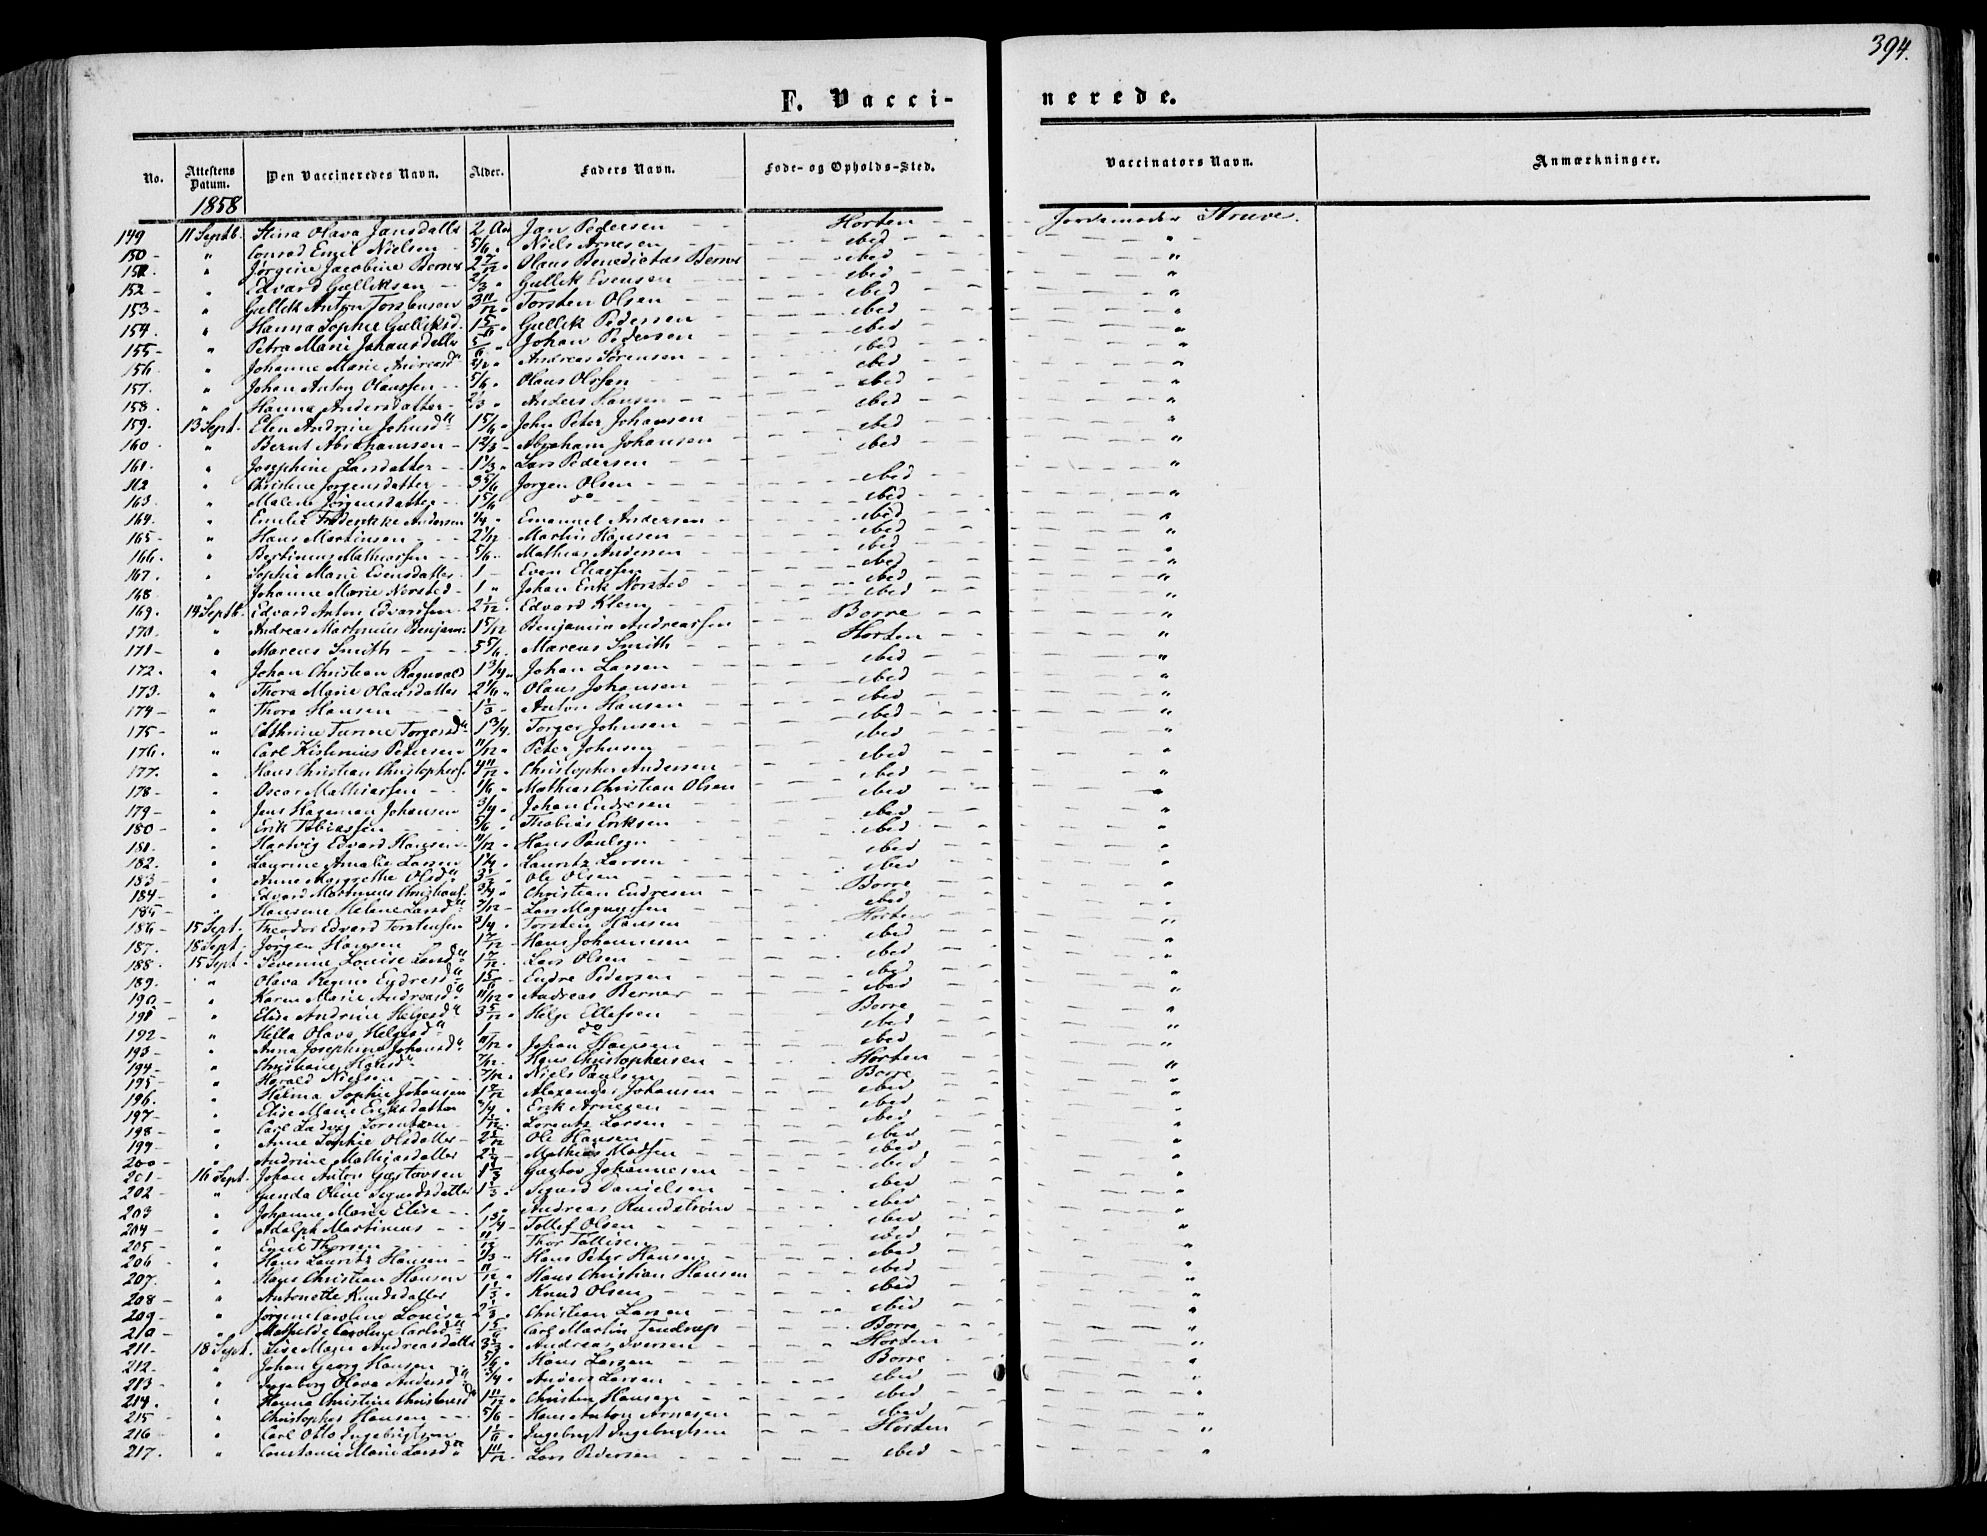 394.
F. Vaccinerede.
No. Attestens Datum. Den Vaccineredes Navn. Alder. Faders Navn. Føde- og Opholds-Sted. Vaccinators Navn. Anmærkninger.
1858
149 11 Septb. Stina Olava Jansdatter 2 Aar Jan Pedersen Horten Jordemoder Struve.
150 " Conrad Emil Nielsen 5/6 " Niels Arnesen ibid "
151 " Jørgine Jacobine Berner 2 7/12 " Olaus Benedictus Berner ibid "
152 " Edvard Gulliksen 2/3 " Gullik Evensen ibid "
153 " Gullik Anton Torstensen 3 11/12 " Torsten Olsen ibid "
154 " Hanna Sophie Gulliksd. 1 5/6 " Gullik Pedersen ibid "
155 " Petra Marie Johansdatter 5/6 " Johan Pedersen ibid "
156 " Johanne Marie Andreasd Andreas Sørensen ibid "
157 " Johan Anton Olaussen 5/6 " Olaus Olsen ibid "
158 " Hanna Andersdatter 2/3 " Anders Hansen ibid "
159 13 Sept. Elen Andrine Johnsd 1 5/6 " John Peter Johansen ibid "
160 " Bernt Abrahamsen 1 2/3 Abraham Johansen ibid "
161 " Josephine Larsdatter 1 1/3 " Lars Pedersen ibid "
162 " Christine Jørgensdatter 3 5/6 Jørgen Olsen ibid "
163 " Malene Jørgensdatter 1 5/6 do ibid "
164 " Emilie Frederikke Andersen 3/4 " Emanuel Andersen ibid "
165 " Hans Martinsen 2 1/12 Martin Hansen ibid "
166 " Bertinius Mathiassen 5/6 Mathias Andersen ibid "
167 " Sophie Marie Evensdatter 1 Even Eliassen ibid "
168 " Johanne Marie Norsted 1 " Johan Erik Norsted ibid "
169 14 Septb. Edvard Anton Edvardsen 2 1/12 Edvard Klem Borre "
170 " Andreas Martinius Benjam: 1 5/12 Benjamin Andreassen Horten "
171 " Marcus Smith 5 5/6 Marcus Smith ibid "
172 " Johan Christian Ragnvald 1 3/4 " Johan Larsen ibid "
173 " Thora Marie Olausdatter 2 1/6 " Olaus Johansen ibid "
174 " Thora Hansen 1 1/3 Anton Hansen ibid "
175 " Cathrine Turine Torgersd 1 3/4 Torger Johnsen ibid "
176 " Carl Kistinius Petersen 11/12 " Peter Johnsen ibid "
177 " Hans Christian Christophers. 4 11/12 " Christopher Andersen ibid "
178 " Oscar Mathiassen 1/6 " Mathias Christian Olsen ibid "
179 " Jens Hageman Johansen 3/4 " Johan Endresen ibid "
180 " Erik Tobiassen 5/6 " Thobias Eriksen ibid "
181 " Hartvig Edvard Hansen 11/12 " Hans Paulsen ibid "
182 " Laurine Amalie Larsen 1 1/4 " Lauritz Larsen ibid "
183 " Anne Margrethe Olsd Ole Olsen Borre "
184 " Edvard Martinius Christians. 3/4 " Christian Endresen ibid "
185 " Hansine Helene Larsd 7/12 Lars Magnussen Horten "
186 15 Sept. Theodor Edvard Torstensen 3/4 " Torsten Hansen ibid "
187 18 Sept. Jørgen Hansen 1 7/12 Hans Johannesen ibid "
188 15 Sept. Severine Louise Larsd 1 7/12 Lars Olsen ibid "
189 " Olava Regine Endresd Endre Pedersen ibid "
190 " Karen Marie Andreasd 11/12 " Andreas Berner Borre "
191 " Elise Andrine Helgesd 3 5/12 " Helge Ellefsen ibid "
192 " Hella Olava Helgesd 1 do ibid "
193 " Anna Josephine Johansd 11/12 " Johan Hansen Horten "
194 " Christiane Hansd 7/12 Hans Christophersen Borre "
195 " Harald Nielsen 7/12 " Niels Paulsen ibid "
196 " Helma Sophie Johansen 1 7/12 Alexander Johansen ibid "
197 " Elise Marie Eriksdatter 3/4 " Erik Arnesen ibid "
198 " Carl Ludvig Lorentzen 1 1/12 Lorentz Larsen ibid "
199 " Anne Sophie Olsdatter 2 5/12 Ole Hansen ibid "
200 " Andrine Mathiasdatter 2 1/4 Mathias Madsen ibid "
201 16 Sept. Johan Anton Gustavsen 1 1/3 Gustav Johannesen ibid "
202 " Gunda Oline Sigurdsdatter 1 1/3 " Sigurd Danielsen ibid "
203 " Johanne Marie Elise 1 " Andreas Rundstrøm ibid "
204 " Adolph Martinius 1 3/4 Tollef Olsen ibid "
205 " Emil Thorsen 11/12 Thor Tollisen ibid "
206 " Hans Lauritz Hansen 1/3 " Hans Peter Hansen ibid "
207 " Hans Christian Hansen 11/12 " Hans Christian Hansen ibid "
208 " Antonette Knudsdatter 1 1/3 " Knud Olsen ibid "
209 " Jørgine Caroline Louise 2 1/3 " Christian Larsen Borre "
210 " Mathilde Caroline Carlsd Carl Martin Tendrup Horten "
211 18 Sept. Lise Marie Andreasdatter Andreas Iversen Borre "
212 " Johan Georg Hansen 5/6 " Hans Larsen ibid "
213 " Ingeborg Olava Andersd 3/4 " Anders Larsen ibid "
214 " Hanna Christine Christensd 1 11/12 " Christen Hansen ibid "
215 " Christopher Hansen 5/6 Hans Anton Arnesen Horten "
216 " Carl Otto Ingebrigtsen 1 1/6 " Ingebrigt Ingebrigtsen ibid "
217 " Constance Marie Larsd 1 11/12 Lars Pedersen ibid "